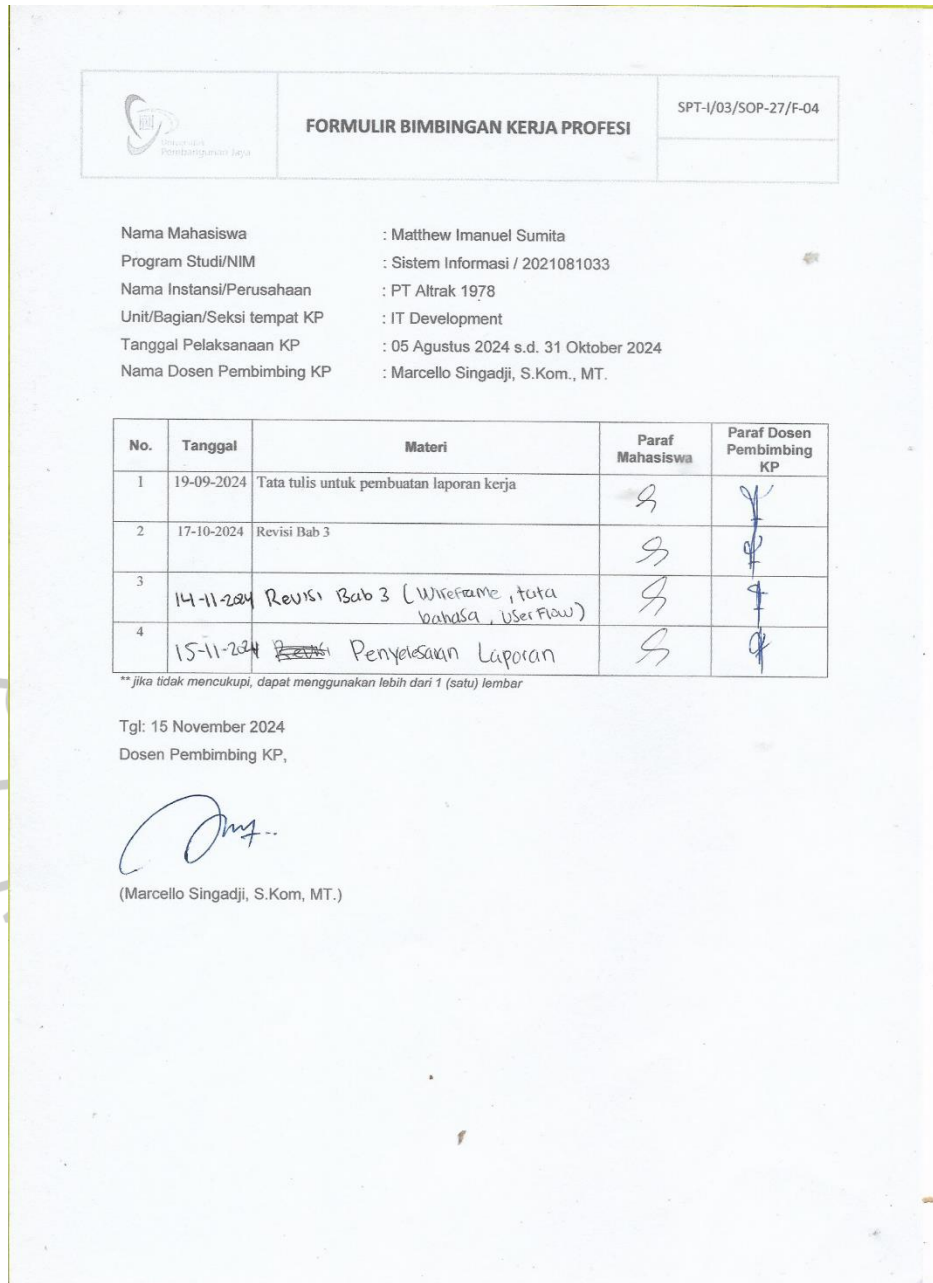 Universitas
Pembangunan Jaya
FORMULIR BIMBINGAN KERJA PROFESI
SPT-I/03/SOP-27/F-04
Nama Mahasiswa : Matthew Imanuel Sumita
Program Studi/NIM : Sistem Informasi / 2021081033
Nama Instansi/Perusahaan : PT Altrak 1978
Unit/Bagian/Seksi tempat KP : IT Development
Tanggal Pelaksanaan KP : 05 Agustus 2024 s.d. 31 Oktober 2024
Nama Dosen Pembimbing KP : Marcello Singadji, S.Kom., MT.
No. Tanggal Materi Paraf Mahasiswa Paraf Dosen Pembimbing KP
1 19-09-2024 Tata tulis untuk pembuatan laporan kerja
2 17-10-2024 Revisi Bab 3
3 14-11-2024 Revisi Bab 3 (Wireframe, tata
bahasa, User Flow)
4 15-11-2024 Revisi Penyelesaian Laporan
** jika tidak mencukupi, dapat menggunakan lebih dari 1 (satu) lembar
Tgl: 15 November 2024
Dosen Pembimbing KP,
(Marcello Singadji, S.Kom, MT.)